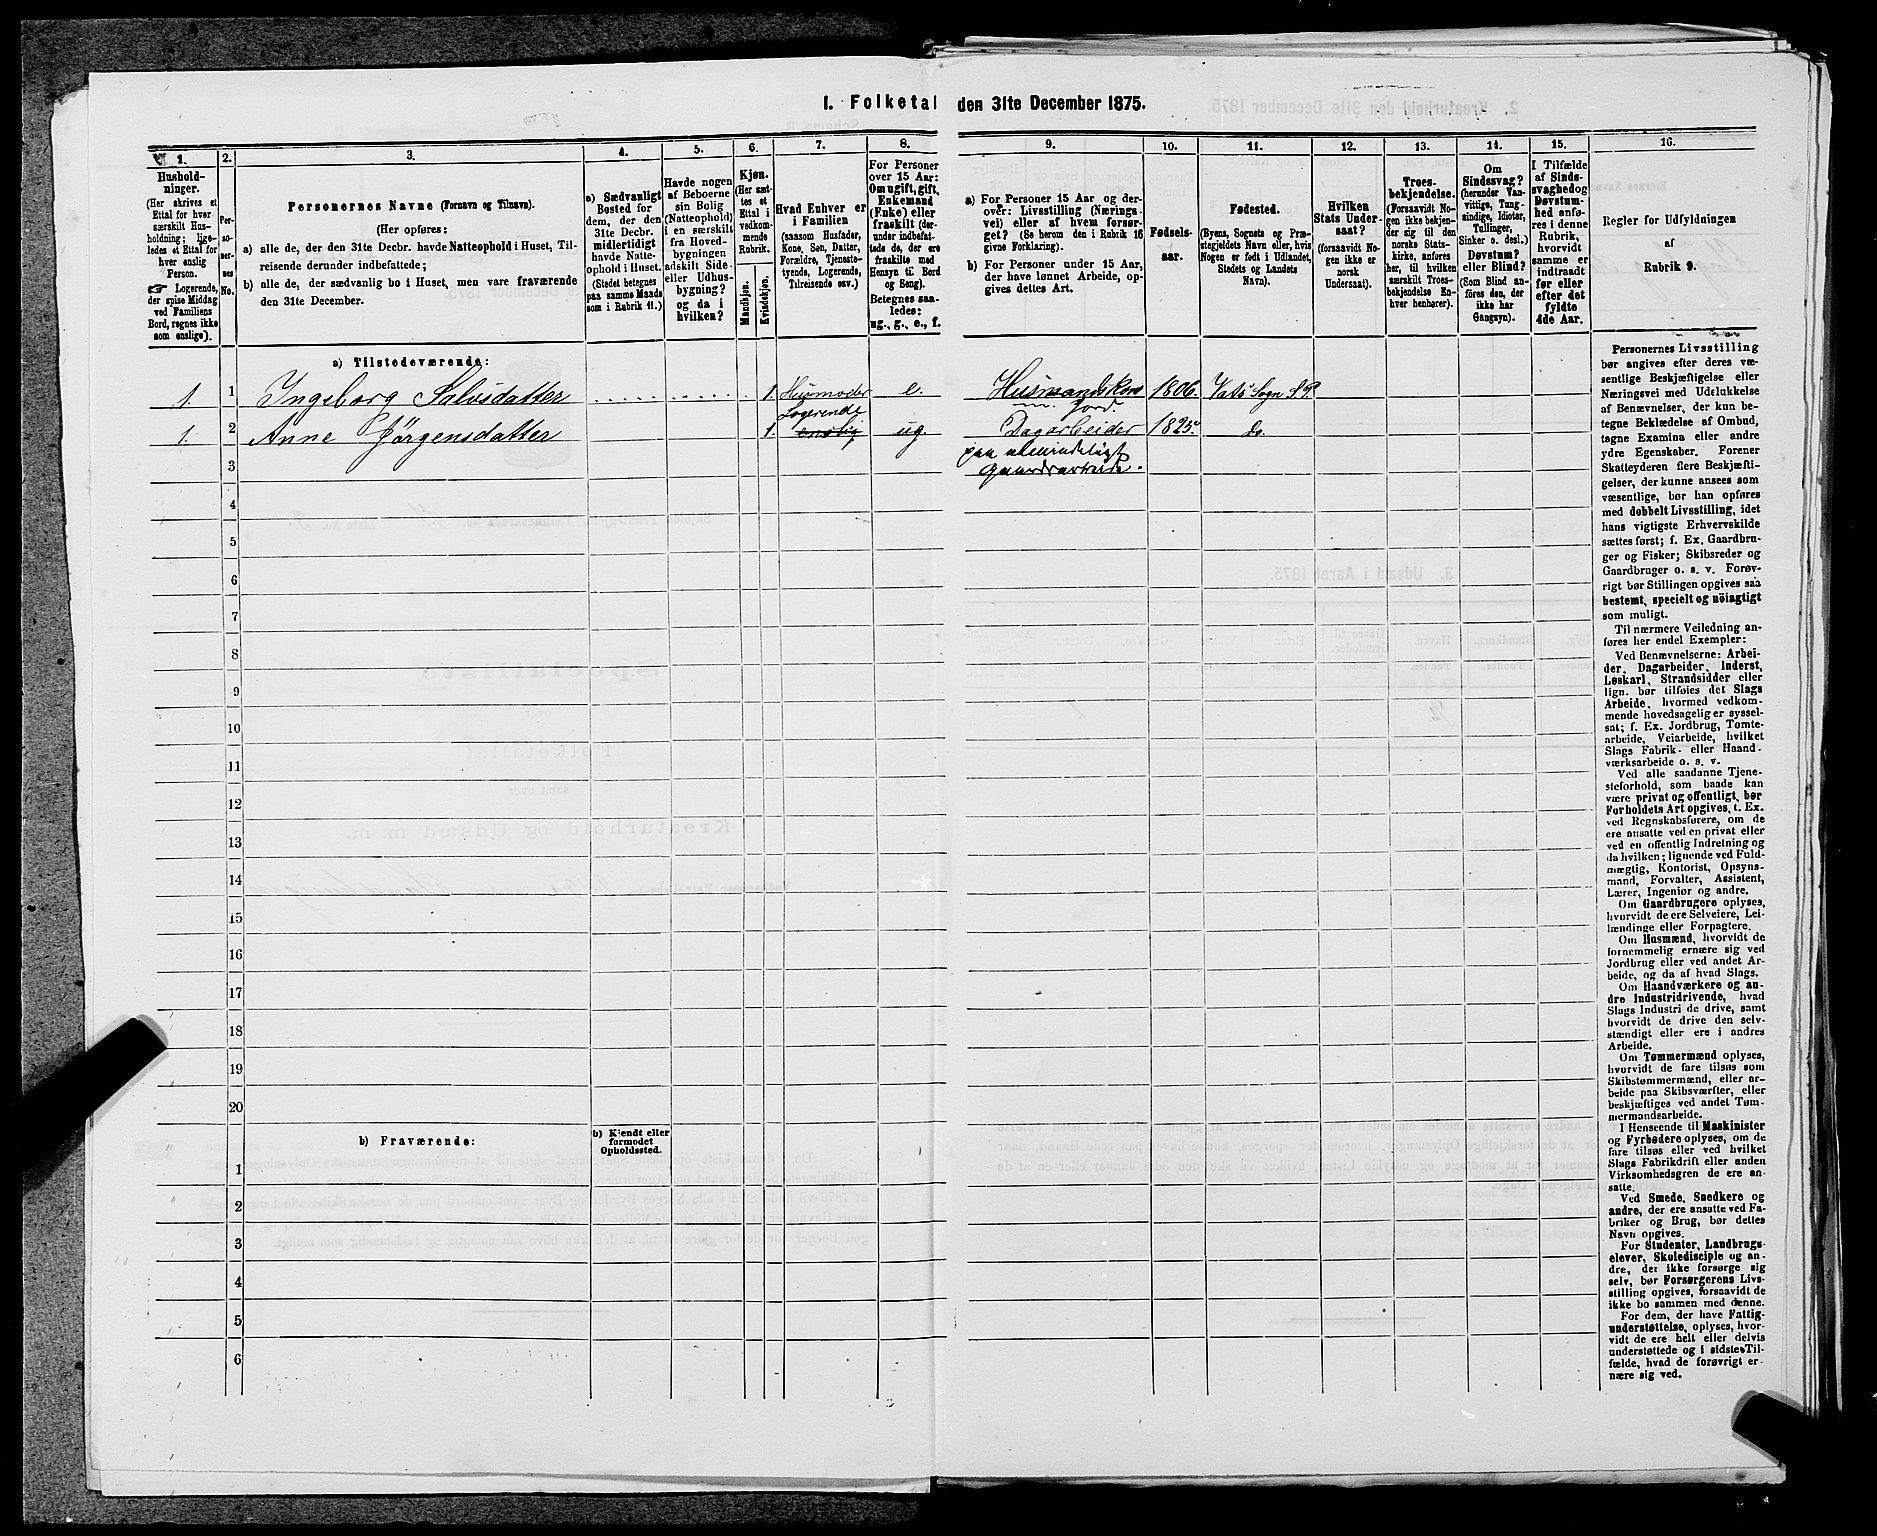 1. Folketal den 31te December 1875.
1.
Husholdninger.
(Her skrives et
Ettal for hver
særskilt Husholdning; ligeledes et Ettal for
hver enslig
Person.
☞ Logerende,
der spise Middag
ved Familiens
Bord, regnes ikke
som enslige).
2.
Personernes
No.
3.
Personernes Navne (Fornavn og Tilnavn).
(Her opføres:
a) alle de, der den 31te Decbr. havde Natteophold i Huset, Tilreisende derunder indbefattede;
b) alle de, der sædvanlig bo i Huset, men vare fraværende
den 31te December.
4.
a) Sædvanligt
Bosted for
dem, der den
31te Decbr.
midlertidigt
havde Natteophold i Huset.
(Stedet betegnes
paa samme Maade
som i Rubrik 11.)
5.
Havde nogen
af Beboerne
sin Bolig
(Natteophold)
i en særskilt
fra Hovedbygningen
adskilt Side- eller Udhusbygning?
og da i
hvilken?
6.
Kjøn.
(Her sættes et
Ettal i
vedkommende
Rubrik.
Mandkjøn.
Kvindekjøn.
7.
Hvad Enhver er
i Familien
(saasom Husfader,
Kone, Søn, Datter,
Forældre, Tjenestetyende, Logerende,
Tilreisende osv.)
8.
For Personer
over 15 Aar:
Om ugift, gift,
Enkemand
(Enke) eller
fraskilt (derunder indbefattede de, der ere
fraskilte med
Hensyn til Bord
og Seng).
Betegnes saaledes:
ug., g., e., f.
9.
a) For Personer 15 Aar og derover: Livsstilling (Næringsvei) eller af hvem forsørget? (Se herom den i Rubrik 16
givne Forklaring).
b) For Personer under 15 Aar,
der have lønnet Arbeide, opgives dettes Art.
10.
Fødselsaar.
11.
Fødested.
(Byens, Sognets og Præstegjeldets Navn eller, hvis
Nogen er født i Udlandet,
Stedets og Landets
Navn).
12.
Hvilken
Stats Undersaat?
(forsaavidt Nogen ikke er
norsk
Undersaat).
13.
Troesbekjendelse.
(Forsaavidt Nogen ikke bekjender sig til den
norske Statskirke, anføres
her, til hvilken
særskilt Troesbekjendelse Enhver henhører).
14.
Om
Sindssvag?
(herunder Vanvittige, Tungsindige, Idioter,
Tullinger,
Sinker o. desl.)
Døvstum?
eller Blind?
(Som Blind anføres den, der
ikke har
Gangsyn).
15.
I Tilfælde
af Sindssvaghed og
Døvstumhed anføres i denne
Rubrik,
hvorvidt
samme er
indtraadt
før eller
efter det
fyldte
4de Aar.
16.
Regler for Udfyldningen
af
Rubrik 9.
a) Tilstedeværende:
1. 1 Ingeborg Salvesdatter 1. Husmoder e. Husmandskone m. Jord. 1806. Vats Sogn S. P.
1. 2 Anne Jørgensdatter 1. Logerende enslig ug. Dagarbeider 1825. do.
paa almindeligt
Gaardsarbeide.
3
4
5
6
7
8
9
10
11
12
13
14
15
16
17
18
19
20
b) Fraværende:
b) Kjendt eller
formodet
Opholdssted.
1
2
3
4
5
6
Personernes Livsstilling
bør angives efter deres væsentlige Beskjæftigelse eller
Næringsvei med Udelukkelse
af Benævnelser, der kun betegne Beklædelse af Ombud,
tagne Examina eller andre
ydre Egenskaber. Forener
Skatteyderen flere Beskjæftigelser, der kunne ansees som
væsentlige, bør han opføres
med dobbelt Livsstilling, idet
hans vigtigste Erhvervskilde
sættes først; f. Ex. Gaardbruger og Fisker; Skibsreder og
Gaardbruger o. s. v. Forøvrigt bør Stillingen opgives saa
bestemt, specielt og nöiagtigt
som muligt.
Til nærmere Veiledning anføres her endel Exempler:
Ved Benævnelserne: Arbeider, Dagarbeider, Inderst,
Løskarl, Strandsidder eller
lign. bør tilføies det Slags
Arbeide, hvormed vedkommende hovedsagelig er sysselsat; f. Ex. Jordbrug, Tomtearbeide, Veiarbeide, hvilket
Slags Fabrik- eller Haandværksarbeide o. s. v.
Ved alle saadanne Tjenesteforhold, som baade kan
være privat og offentligt, bør
Forholdets Art opgives, t. Ex.
ved Regnskabsførere, om de
ere ansatte ved en privat eller
ved en offentlig Indretning og
da hvilken; lignende ved Fuldmægtig, Kontorist, Opsynsmand, Forvalter, Assistent,
Lærer, Ingeniør og andre.
Om Gaardbrugere oplyses,
hvorvidt de ere Selveiere, Leilændinge eller Forpagtere.
Om Husmænd, hvorvidt de
fornemmelig ernære sig ved
Jordbrug eller ved andet Arbeide, og da af hvad Slags.
Om Haandværkere og andre Industridrivende, hvad
Slags Industri de drive, samt
hvorvidt de drive den selvstændigt eller ere i andres
Arbeide.
Om Tømmermænd oplyses,
hvorvidt de fare tilsøs som
Skibstømmermænd, eller arbeide paa Skibsværfter, eller
beskjæftiges ved andet Tømmermandsarbeide.
I Henseende til Maskinister
og Fyrbødere oplyses, om de
fare tilsøs eller ved hvilket
Slags Fabrikdrift eller anden
Virksomhedsgren de ere ansatte.
Ved Smede, Snedkere og
andre, der ere ansatte ved Fabriker og Brug, bør dettes
Navn opgives.
For Studenter, Landbrugselever, Skoledisciple og andre, der ikke forsørge sig
selv, bør Forsørgerens Livsstilling opgives, forsaavidt de
ikke bo sammen med denne.
For dem, der have Fattigunderstøttelse, oplyses, hvorvidt de ere helt eller delvis
understøttede og i sidste Tilfælde, hvad de forøvrigt ernære sig ved.